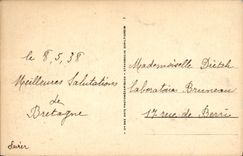 le 8, 5, 38
Meilleures Salutations
de
Bretagne
Mademoiselle Dietsh
Laboratoire Bruneau
17 rue de Berri